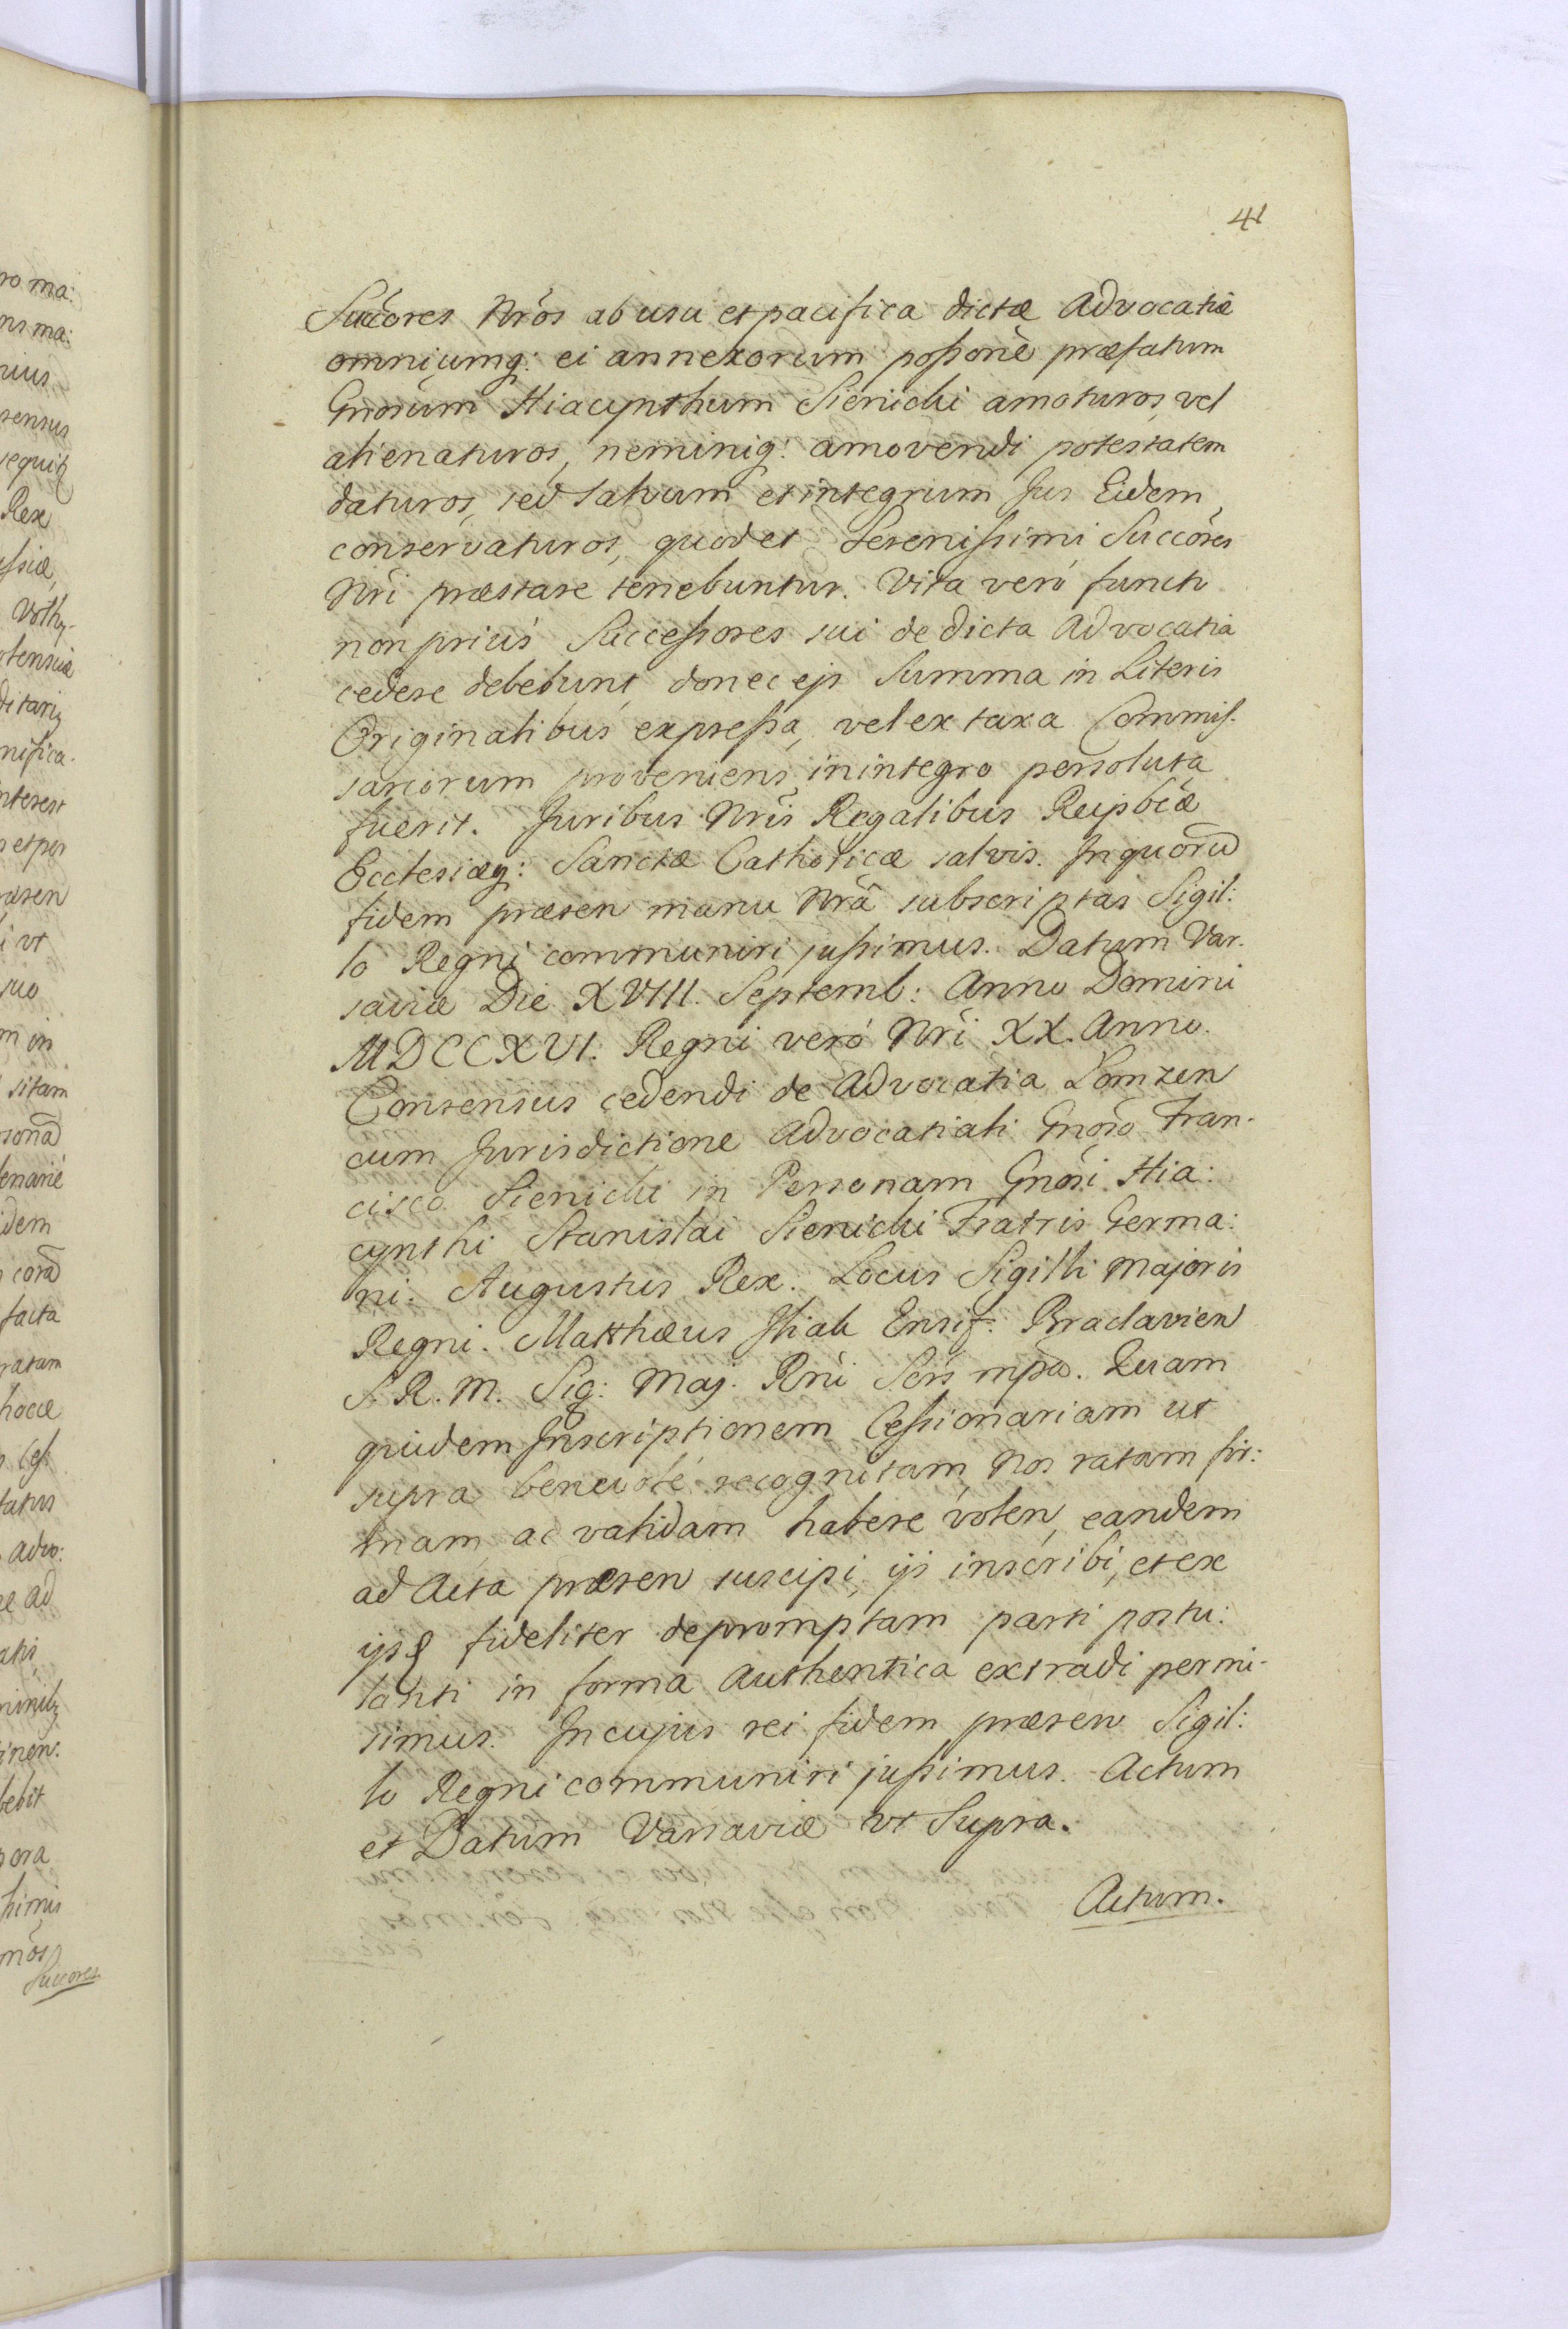 41
Succōres Nr̄os ab usu et pacifica dictæ Advocatiæ
omniumq: ei annexorum poſsonē præfatum
Gn̄osum Hiacynthum Sienicki amoturos, vel
alienaturos, neminiq: amovendi potestatem
daturos, sed salvum et integrum Jus Eidem
conservaturos, quod et Sereniſsimi Succōres
Nr̄i præstare tenebuntur. Vita verò functo
non prius Succeſsores sui de dicta Advocatia
cedere debebunt, donec ejs Summa in Literis
Originalibus expreſsa, vel ex taxa Commiſ-
sariorum proveniens, in integro persoluta
fuerit. Juribus Nr̄is Regalibus Reipbcæ
Ecclesiæq: Sanctæ Catholicæ salvis. In quorū
fidem præsen manu Nr̄a subscriptas Sigil:
lo Regni communiri juſsimus. Datum Var-
saviæ Die XVIII. Septemb: Anno Domini
MDCCXVI. Regni verò Nr̄i XX. Anno.
Consensus cedendi de Advocatia Lomzen
cum Jurisdictione Advocatiali Gn̄oso Fran-
cisco Sienicki in Personam Gn̄osi Hia:
cynthi Stanislai Sienicki Fratris Germa:
ni. Augustus Rex. Locus Sigilli Majoris
Regni. Matthæus Ensif: Braclavien
S. R. M. Sig: Maj. Rn̄i Scrs mpa. Quam
quidem Inscriptionem Ceſsionariam ut
supra benevole recognitam, Nos ratam fir:
mam ac validam habere volen, eandem
ad Acta præsen suscipi, ijs inscribi, et ex
ijsd fideliter depromptam parti postu:
lanti in forma Authentica extradi permi-
simus. In cujus rei fidem præsen Sigil:
lo Regni communiri juſsimus. Actum
et Datum Varsaviæ vt Supra.
Actum.
ro ma:
ns ma:
nius
sensus
Rex
ſsiæ,
Volhy-
nifica-
nterest
s et per
ræsen
i vt
suo
m in
sitam
sonā
enarie
idem
corā
facta
ratam
hocce
Ceſ
tatus
Advo:
ad
atis
inen.
bebit
pora
ſsimis
Succores